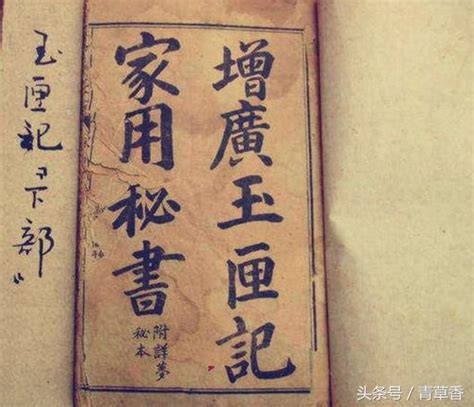 增廣玉匣記
家用秘書
附詳夢
秘本
玉匣记“下部”
头条号 / 青草香